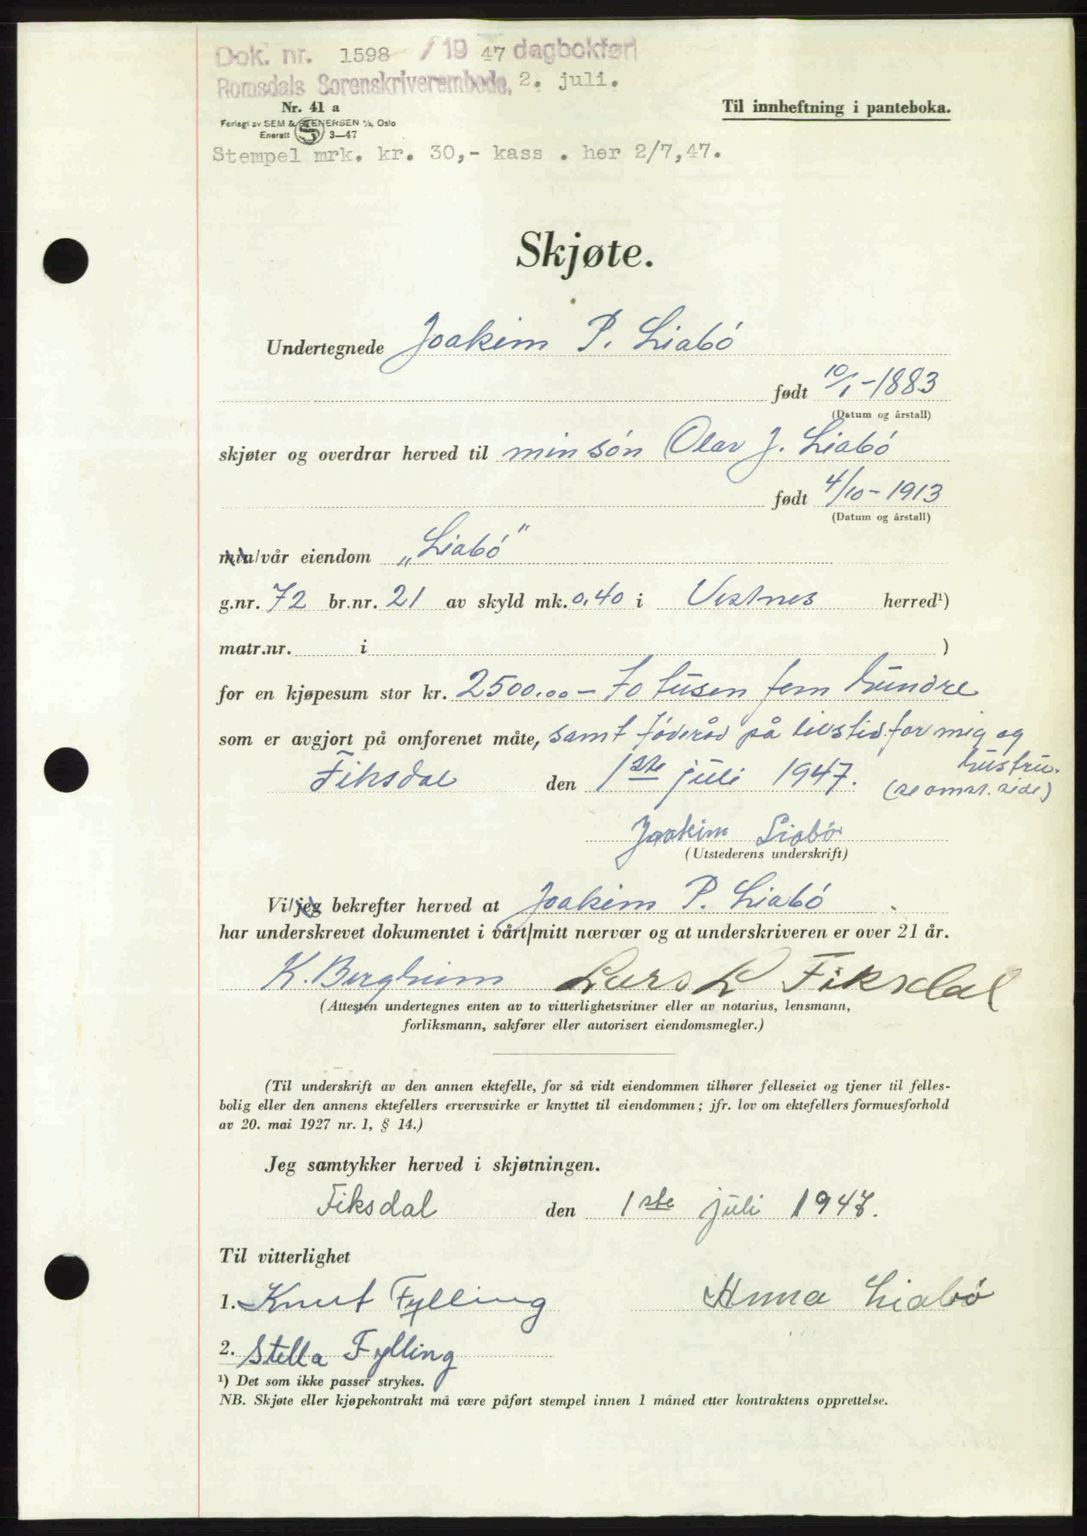 Dok. nr. 1598 / 19 47 dagbokført
Romsdals Sorenskriverembede, 2. juli.
Nr. 41 a
Forlagt av SEM & STENERSEN A/S, Oslo
Enerett S 3—47
Til innheftning i panteboka.
Stempel mrk. kr. 30,- kass . her 2/7,47.
Skjøte.
Undertegnede Joakim P. Liabö
født 10/1-1883
(Datum og årstall)
skjøter og overdrar herved til min sön Olav J. Liabö
født 4/10-1913
(Datum og årstall)
min/vår eiendom „Liabö"
g.nr. 72 br.nr. 21 av skyld mk. 0,40 i Vestnes herred¹)
matr.nr. i )
for en kjøpesum stor kr. 2500,00 - To tusen fem hundre
som er avgjort på omforenet måte, samt föderåd på livstid for mig og
hustru.
Fiksdal den 1ste juli 1947. (se omst. side)
Joakim Liabö
(Utstederens underskrift)
Vi/jeg bekrefter herved at Joakim P. Liabö
har underskrevet dokumentet i vårt/mitt nærvær og at underskriveren er over 21 år.
K. Bergheim Lars L Fiksdal
(Attesten undertegnes enten av to vitterlighetsvitner eller av notarius, lensmann,
forliksmann, sakfører eller autorisert eiendomsmegler.)
(Til underskrift av den annen ektefelle, for så vidt eiendommen tilhører felleseiet og tjener til felles-
bolig eller den annens ektefellers ervervsvirke er knyttet til eiendommen; jfr. lov om ektefellers formuesforhold
av 20. mai 1927 nr. 1, § 14.)
Jeg samtykker herved i skjøtningen.
Fiksdal den 1ste juli 1947.
Til vitterlighet
1. Knut Fylling Anna Liabö
2. Stella Fylling
¹) Det som ikke passer strykes.
NB. Skjøte eller kjøpekontrakt må være påført stempel innen 1 måned etter kontraktens opprettelse.